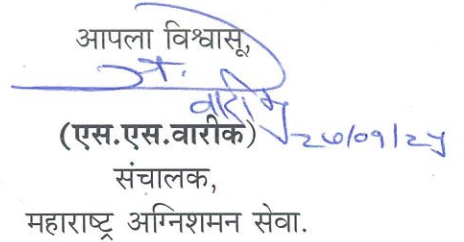 आपला विश्वासू,
(एस.एस.वारीक)
संचालक,
महाराष्ट्र अग्निशमन सेवा.